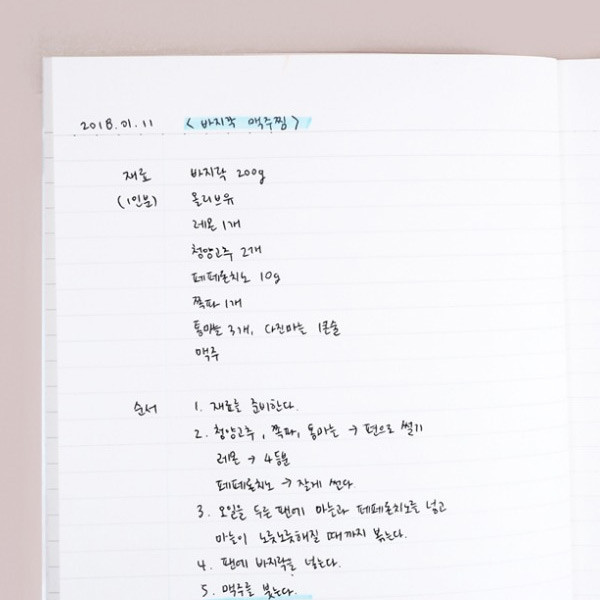 2018.01.11 <바지락 맥주찜>
재료 바지락 200g
(1인분) 올리브유
레몬 1개
청양고추 2개
페페론치노 10g
쪽파 1개
통마늘 3개, 다진마늘 1큰술
맥주
순서 1. 재료를 준비한다.
2. 청양고추, 쪽파, 통마늘 → 편으로 썰기
레몬 → 4등분
페페론치노 → 잘게 썬다
3. 오일을 두른 팬에 마늘과 페페론치노를 넣고
마늘이 노릇노릇해질 때까지 볶는다.
4. 팬에 바지락을 넣는다.
5. 맥주를 붓는다.